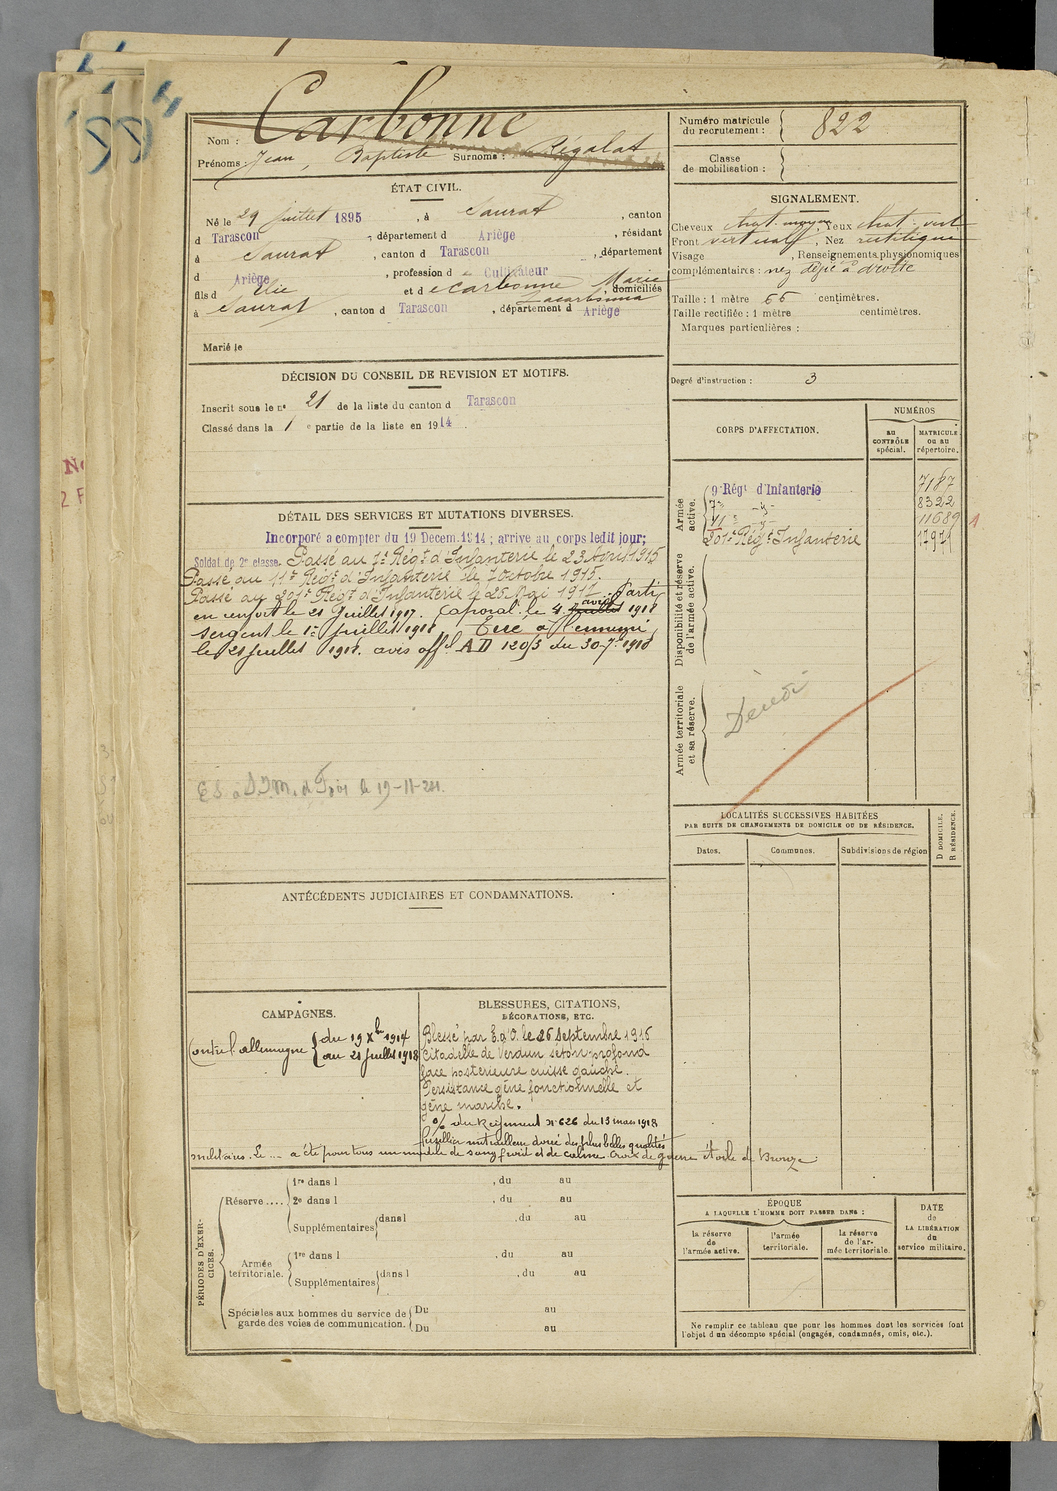 Carbonne
Nom :
Prénoms : Jean, Baptiste Surnoms : Régalat
Numéro matricule du recrutement : 822
Classe de mobilisation :
ÉTAT CIVIL.
Né le 29 juillet 1895, à Saurat, canton
d Tarascon, département d Ariège, résidant
à Saurat, canton d Tarascon, département
d Ariège, profession d Cultivateur
fils d Elie et d Carbonne Marie, domiciliés
à Saurat, canton d Tarascon, département d Ariège
Marié le
SIGNALEMENT.
Cheveux chat. moyen, Yeux chat. vert
Front vertical, Nez rectiligne
Visage , Renseignements physionomiques
complémentaires : nez dépé à droite
Taille : 1 mètre 66 centimètres.
Taille rectifiée : 1 mètre centimètres.
Marques particulières :
Degré d'instruction : 3
DÉCISION DU CONSEIL DE REVISION ET MOTIFS.
Inscrit sous le n° 21 de la liste du canton d Tarascon
Classé dans la 1 e partie de la liste en 1914.
DÉTAIL DES SERVICES ET MUTATIONS DIVERSES.
Incorporé a compter du 19 Décem. 1914; arrive au corps ledit jour;
Soldat de 2e classe. Passé au 7e Régt d'Infanterie le 23 Avril 1915
Passé au 11e Régt d'Infanterie le 7 octobre 1915.
Passé au 201e Régt d'Infanterie le 25 Mai 1917. Parti
en renfort le 21 Juillet 1917. Caporal le 4 juillet avril 1918
sergent le 1er Juillet 1918 Tué à l'ennemi
le 21 juillet 1918. avis offl AD 1205 du 30-7-1918
E.S. à S.I.M. d Foix le 19-11-24.
CORPS D'AFFECTATION.
NUMÉROS
AU CONTRÔLE spécial.
MATRICULE ou au répertoire.
Armée active.
9e Régt d'Infanterie 7187
7e -y- 8322
11e -y- 11689
201e Régt Infanterie 17971
Disponibilité et réserve de l'armée active.
Armée territoriale et sa réserve.
Décédé
LOCALITÉS SUCCESSIVES HABITÉES
PAR SUITE DE CHANGEMENTS DE DOMICILE OU DE RÉSIDENCE.
Dates.
Communes.
Subdivisions de région
D DOMICILE.
R RÉSIDENCE.
ANTÉCÉDENTS JUDICIAIRES ET CONDAMNATIONS.
CAMPAGNES.
Contre l'allemagne du 19 Xbre 1914
au 21 juillet 1918
BLESSURES, CITATIONS,
DÉCORATIONS, ETC.
Blessé par E. d'O. le 26 septembre 1916
citadelle de Verdun séton profond
face postérieure cuisse gauche.
Persistance gêne fonctionnelle et
gêne marche.
O/ du Régiment n° 626 du 13 mars 1918
fusilier mitrailleur doué des plus belles qualités
militaires. Le ... a été pour tous un modèle de sang froid et de calme. Croix de guerre étoile de bronze.
PÉRIODES D'EXERCICES.
Réserve....
1re dans l , du au
2e dans l , du au
Supplémentaires dans l , du au
Armée territoriale.
1re dans l , du au
Supplémentaires dans l , du au
Spéciales aux hommes du service de garde des voies de communication.
Du au
Du au
ÉPOQUE
A LAQUELLE L'HOMME DOIT PASSER DANS :
la réserve de l'armée active.
l'armée territoriale.
la réserve de l'armée territoriale.
DATE de LA LIBÉRATION du service militaire.
Ne remplir ce tableau que pour les hommes dont les services font
l'objet d'un décompte spécial (engagés, condamnés, omis, etc.).